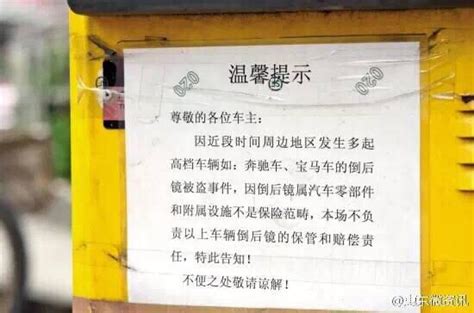 温馨提示
尊敬的各位车主:
因近段时间周边地区发生多起
高档车辆如:奔驰车、宝马车的倒后
镜被盗事件,因倒后镜属汽车零部件
和附属设施不是保险范畴,本场不负
责以上车辆倒后镜的保管和赔偿责
任,特此告知!
不便之处敬请谅解!
@山东微资讯